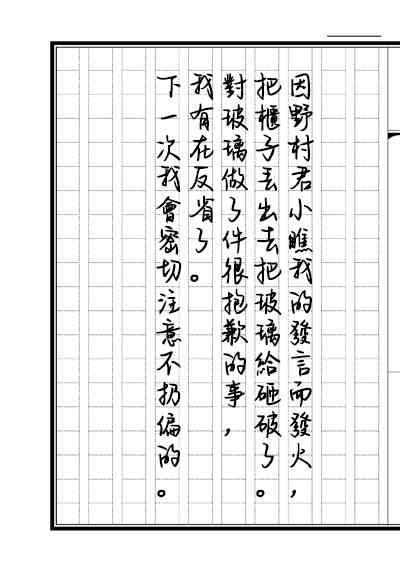 因野村君小瞧我的發言而發火，
把櫃子丟出去把玻璃給砸破了。
對玻璃做了件很抱歉的事，
我有在反省了。
下一次我會密切注意不扔偏的。